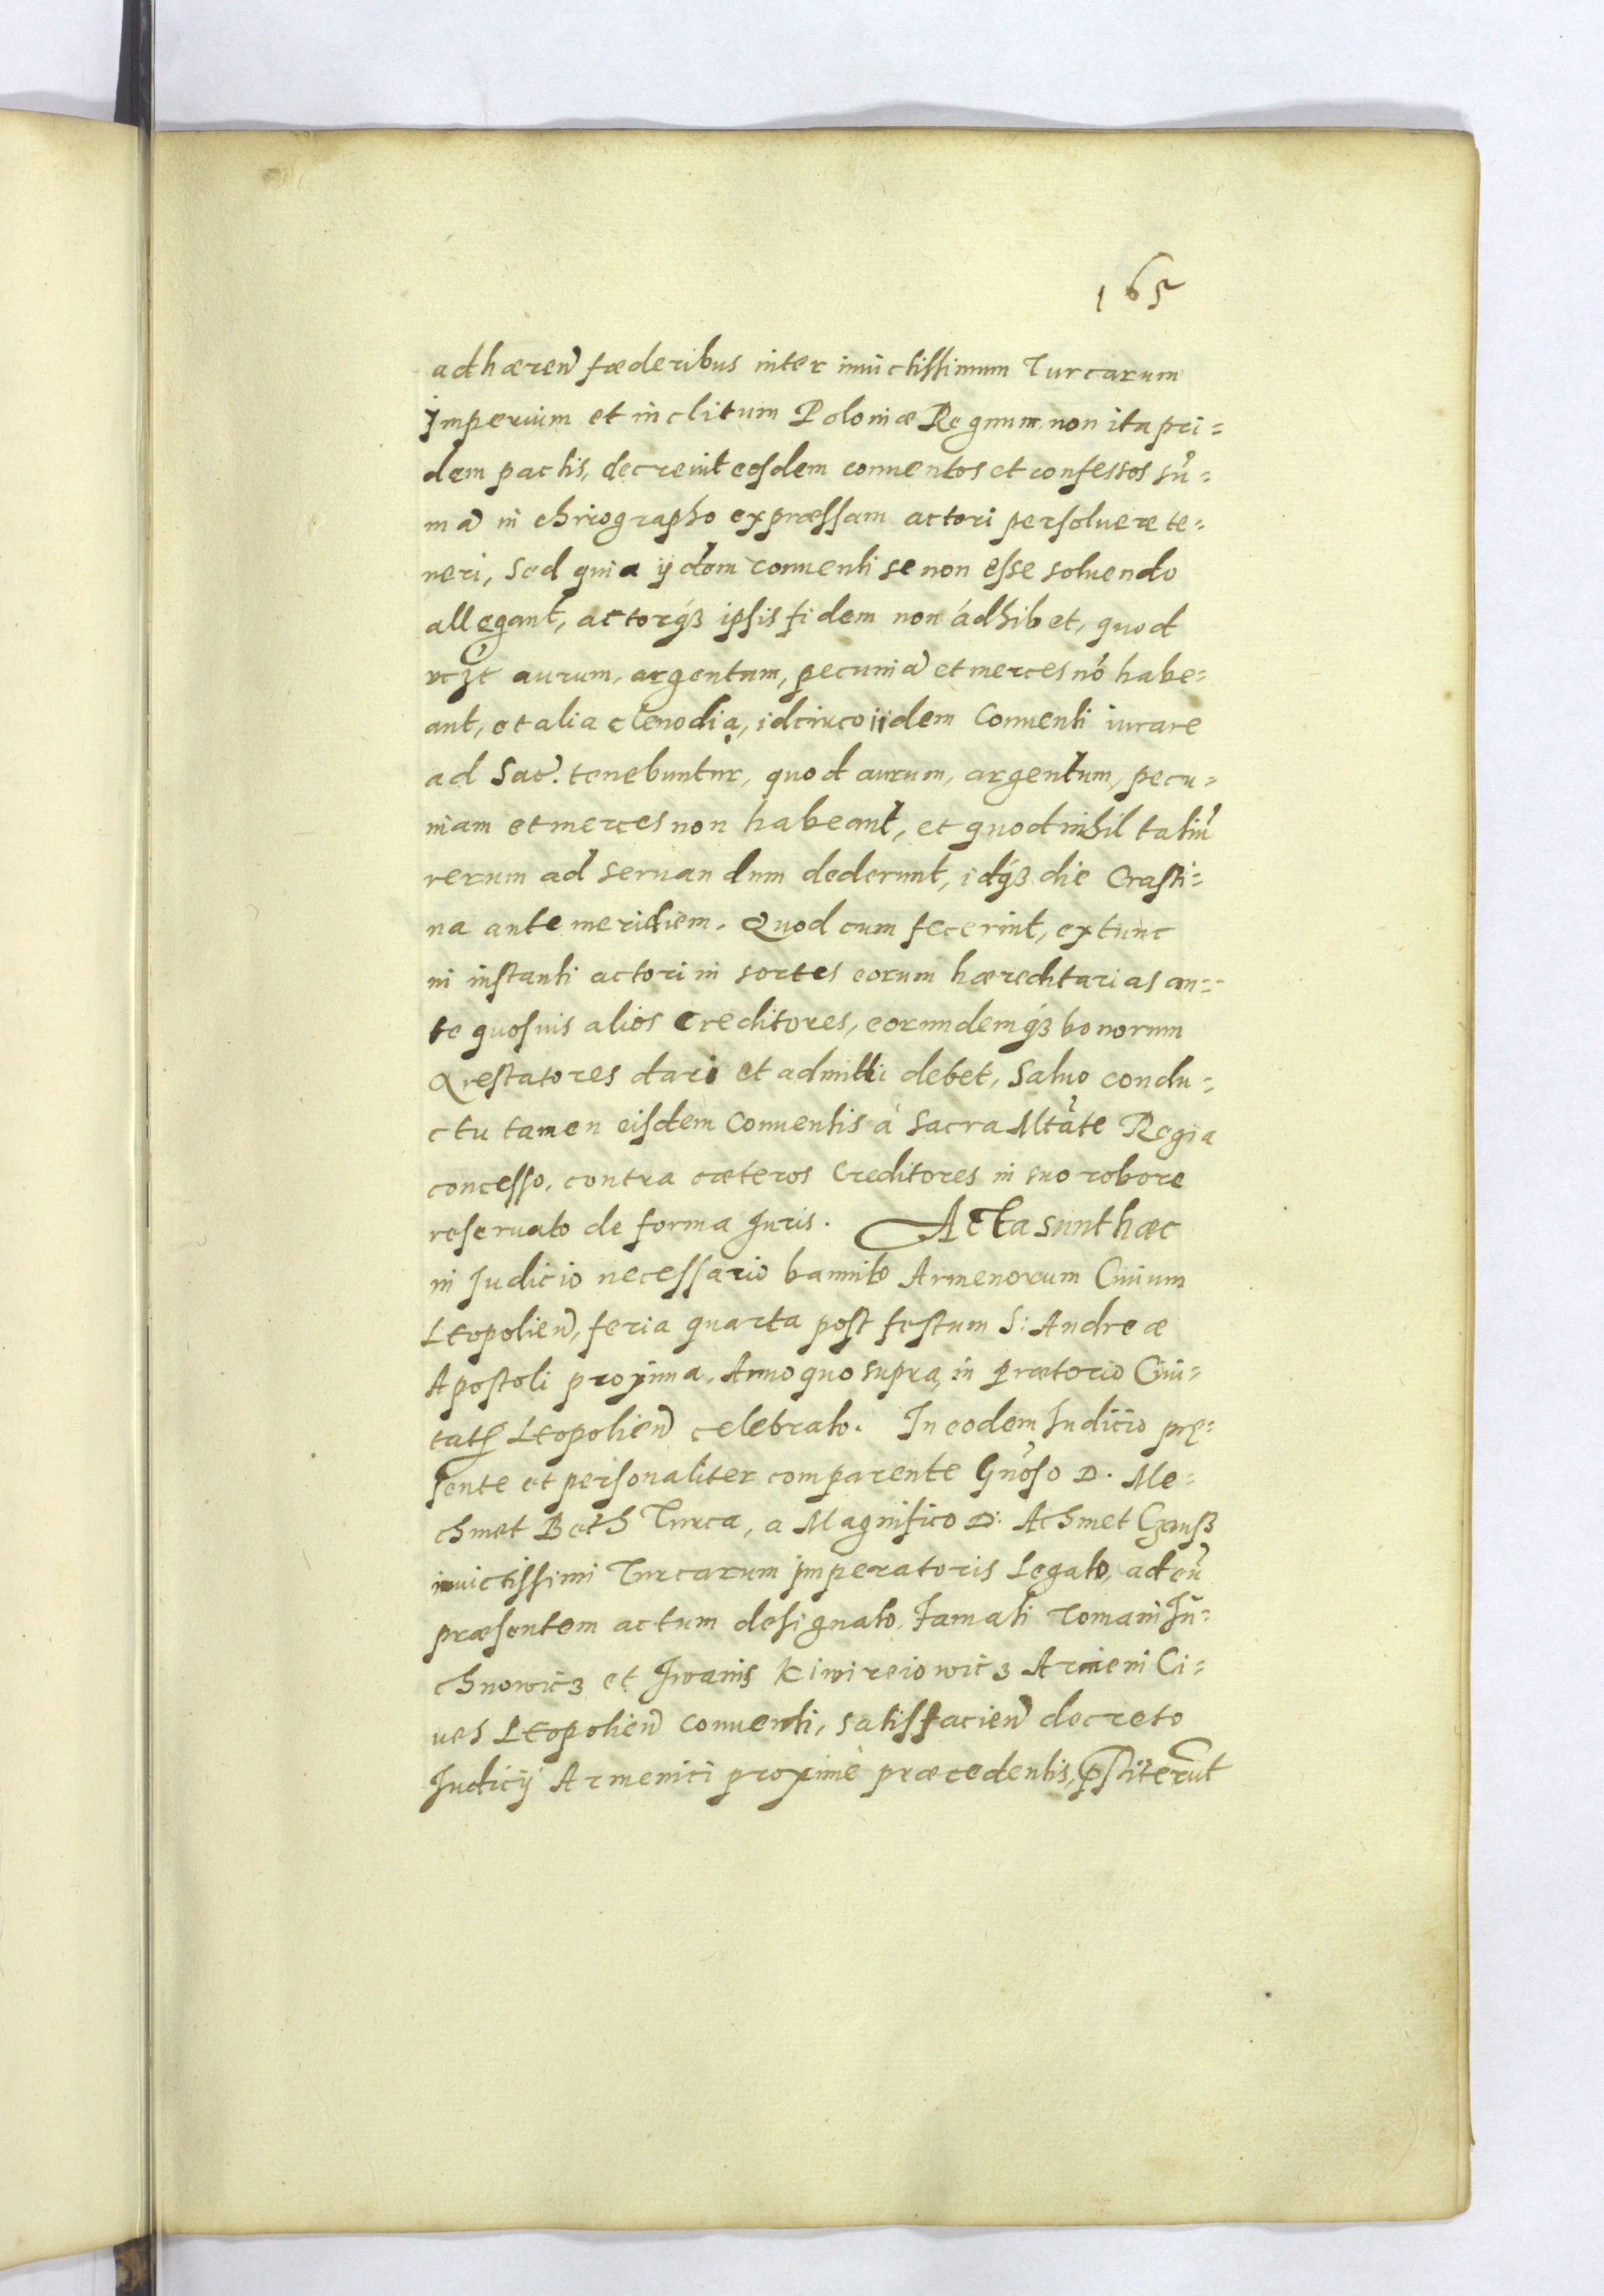 165
adhæren̄ fæderibus inter inuictissimum Turcarum
Imperium et inclitum Poloniæ Regnum, non ita pri=
dem pactis, decreuit eosdem conuentos et confessos sū=
mā in chirographo expræssam actori persoluere te=
neri, Sed quia ijdem conuenti se non esse soluendo
allegant, actorq́ꝫ ipsis fidem non ádhibet, quod
vcꝫt aurum, argentum, pecuniā et merces nō habe=
ant, et alia clenodia, idcirco iidem Conuenti iurare
ad Sac̄. tenebuntur, quod aurum, argentum, pecu=
niam et merces non habeant, et quod nihil taliū
rerum ad seruandum dederunt, idq́ꝫ die Crasti=
na ante meridiem. Quod cum fecerint, extunc
in instanti actori in sortes eorum hæreditarias an=
te quosuis alios Creditores, eorundemq́ꝫ bonorum
Arestatores dari et admitti debet, Saluo condu=
ctu tamen eisdem Conuentis à Sacra Mtāte Regia
concesso, contra cæteros Creditores in suo robore
reseruato de forma Iuris. Acta sunt hæc
in Iudicio necessario bannito Armenorum Ciuium
Leopolien̄, feria quarta post festum S: Andreæ
Apostoli proxima, Anno quo supra, in Prætorio Ciui=
tatꝭ Leopolien̄ celebrato. In eodem Iudicio prę=
sente et personaliter comparente Gn̄oso D. Me=
chmet Beth Turca, a Magnifico D: Achmet Czausz
inuictissimi Turcarum Imperatoris Legato, ad eū
præsentem actum designato, Famati Toman Iu=
chnowicz et Iwanis Kiwireiowicz Armeni Ci=
ues Leopolien̄ conuenti, satisfacien̄ decreto
Iudicij Armenici proximè præcedentis, pͬstiterūt